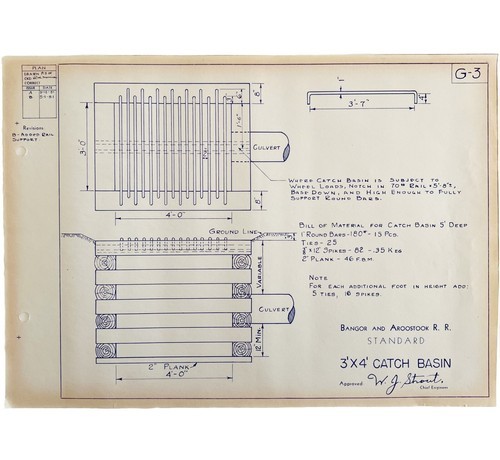 PLAN
G-3
A
B
Revision:
B-Added Rail
Support
8"
6"
1'-6"
3'-0"
Culvert
8"
4'-0"
1"
3'-7"
Where Catch Basin is Subject to
Wheel Loads, Notch in 70# Rail × 5'-8½,
Base Down, and High Enough to Fully
Support Round Bars.
Ground Line
Variable
Culvert
12" Min.
2" Plank
4'-0"
Bill of Material for Catch Basin 5' Deep
1" Round Bars-180#-15 Pcs.
Ties-25
2" Plank - 46 F.B.M.
Note
For each additional foot in height add:
5 Ties, 16 Spikes.
Bangor and Aroostook R. R.
STANDARD
3'X4' CATCH BASIN
Approved: W J Strout.
Chief Engineer